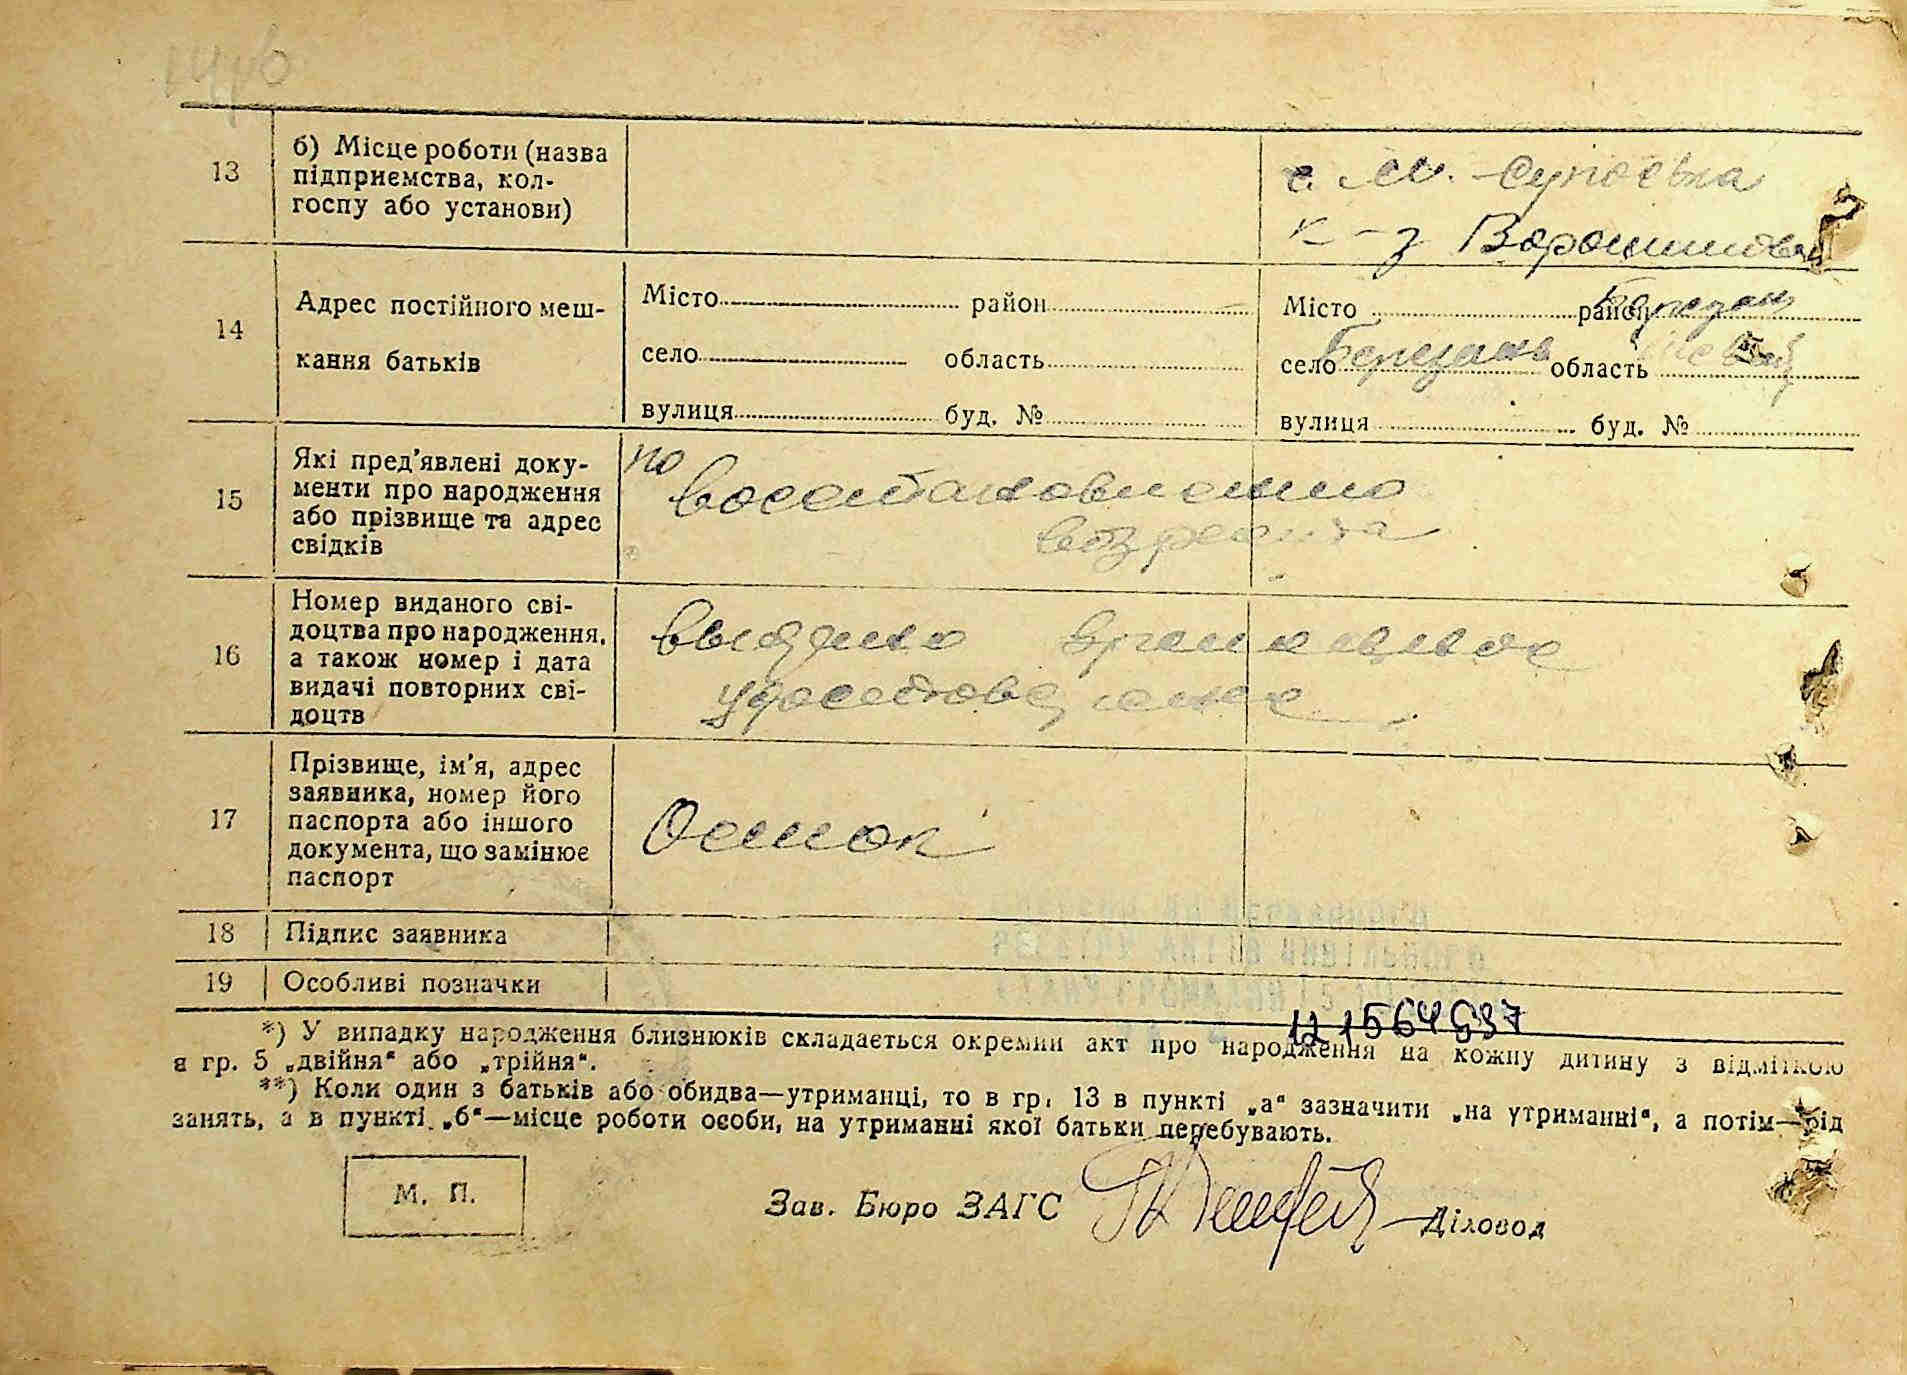 13
б) Місце роботи (назва
підприємства, кол-
госпу або установи)
с. М. Супоевка
к-з Ворошилова
14
Адрес постійного меш-
кання батьків
Місто район
село область
вулиця буд. №
Місто район Березан
село Березань область
вулиця буд. №
15
Які пред'явлені доку-
менти про народження
або прізвище та адрес
свідків
по восстановлению
возраста
16
Номер виданого сві-
доцтва про народження,
а також номер і дата
видачі повторних сві-
доцтв
выдано
17
Прізвище, ім'я, адрес
заявника, номер його
паспорта або іншого
документа, що замінює
паспорт
18
Підпис заявника
19
Особливі позначки
*) У випадку народження близнюків складається окремий акт про народження на кожну дитину з відміткою
в гр. 5 „двійня“ або „трійня“.
**) Коли один з батьків або обидва—утриманці, то в гр. 13 в пункті „а“ зазначити „на утриманні“, а потім—рід
занять, а в пункті „б“—місце роботи особи, на утриманні якої батьки перебувають.
М. П.
Зав. Бюро ЗАГС
Діловод